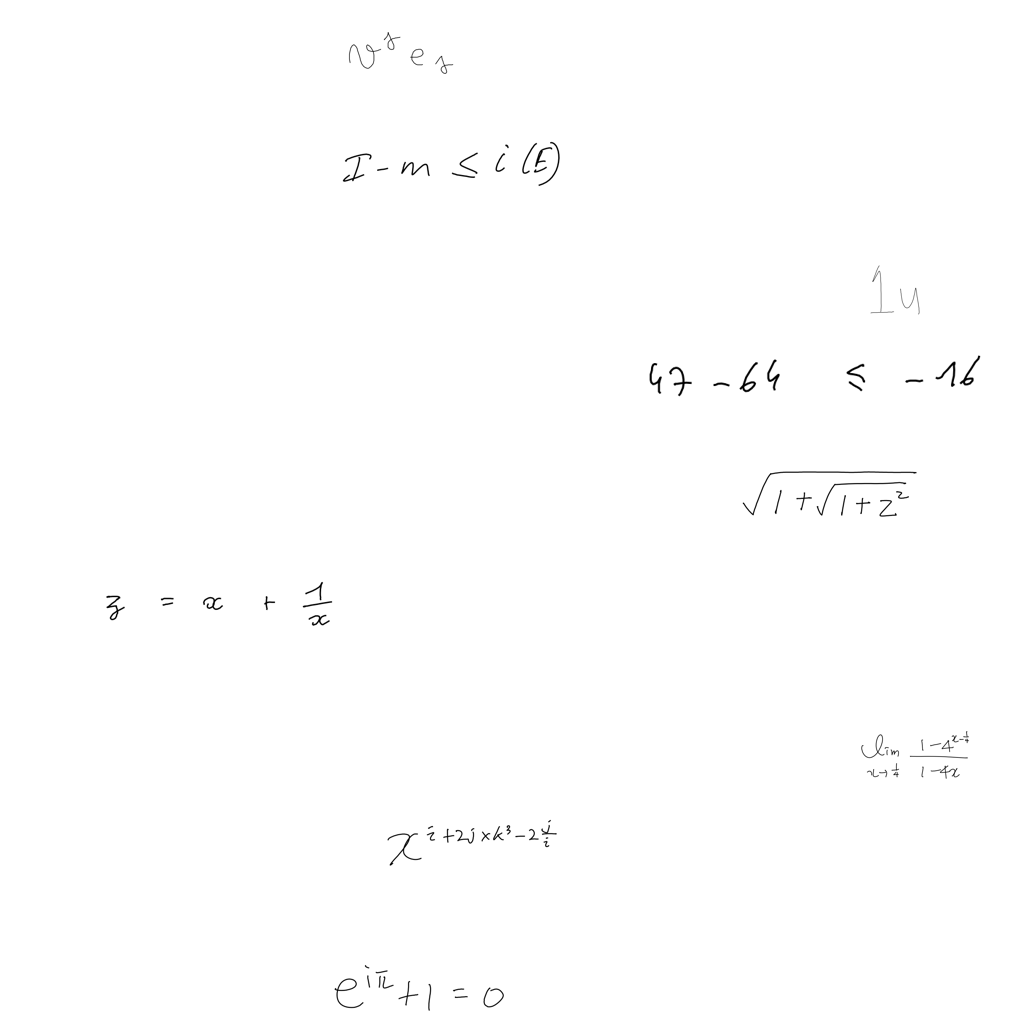 v^s e_s
I - m ≤ i(E)
1u
47 - 64 ≤ -16
\sqrt{1+\sqrt{1+z^2}}
z = x + \frac{1}{x}
\lim_{x \to \frac{1}{4}} \frac{1-4^{x-\frac{1}{4}}}{1-4x}
x^{i+2j×k^3-2\frac{j}{i}}
e^{iπ}+1=0